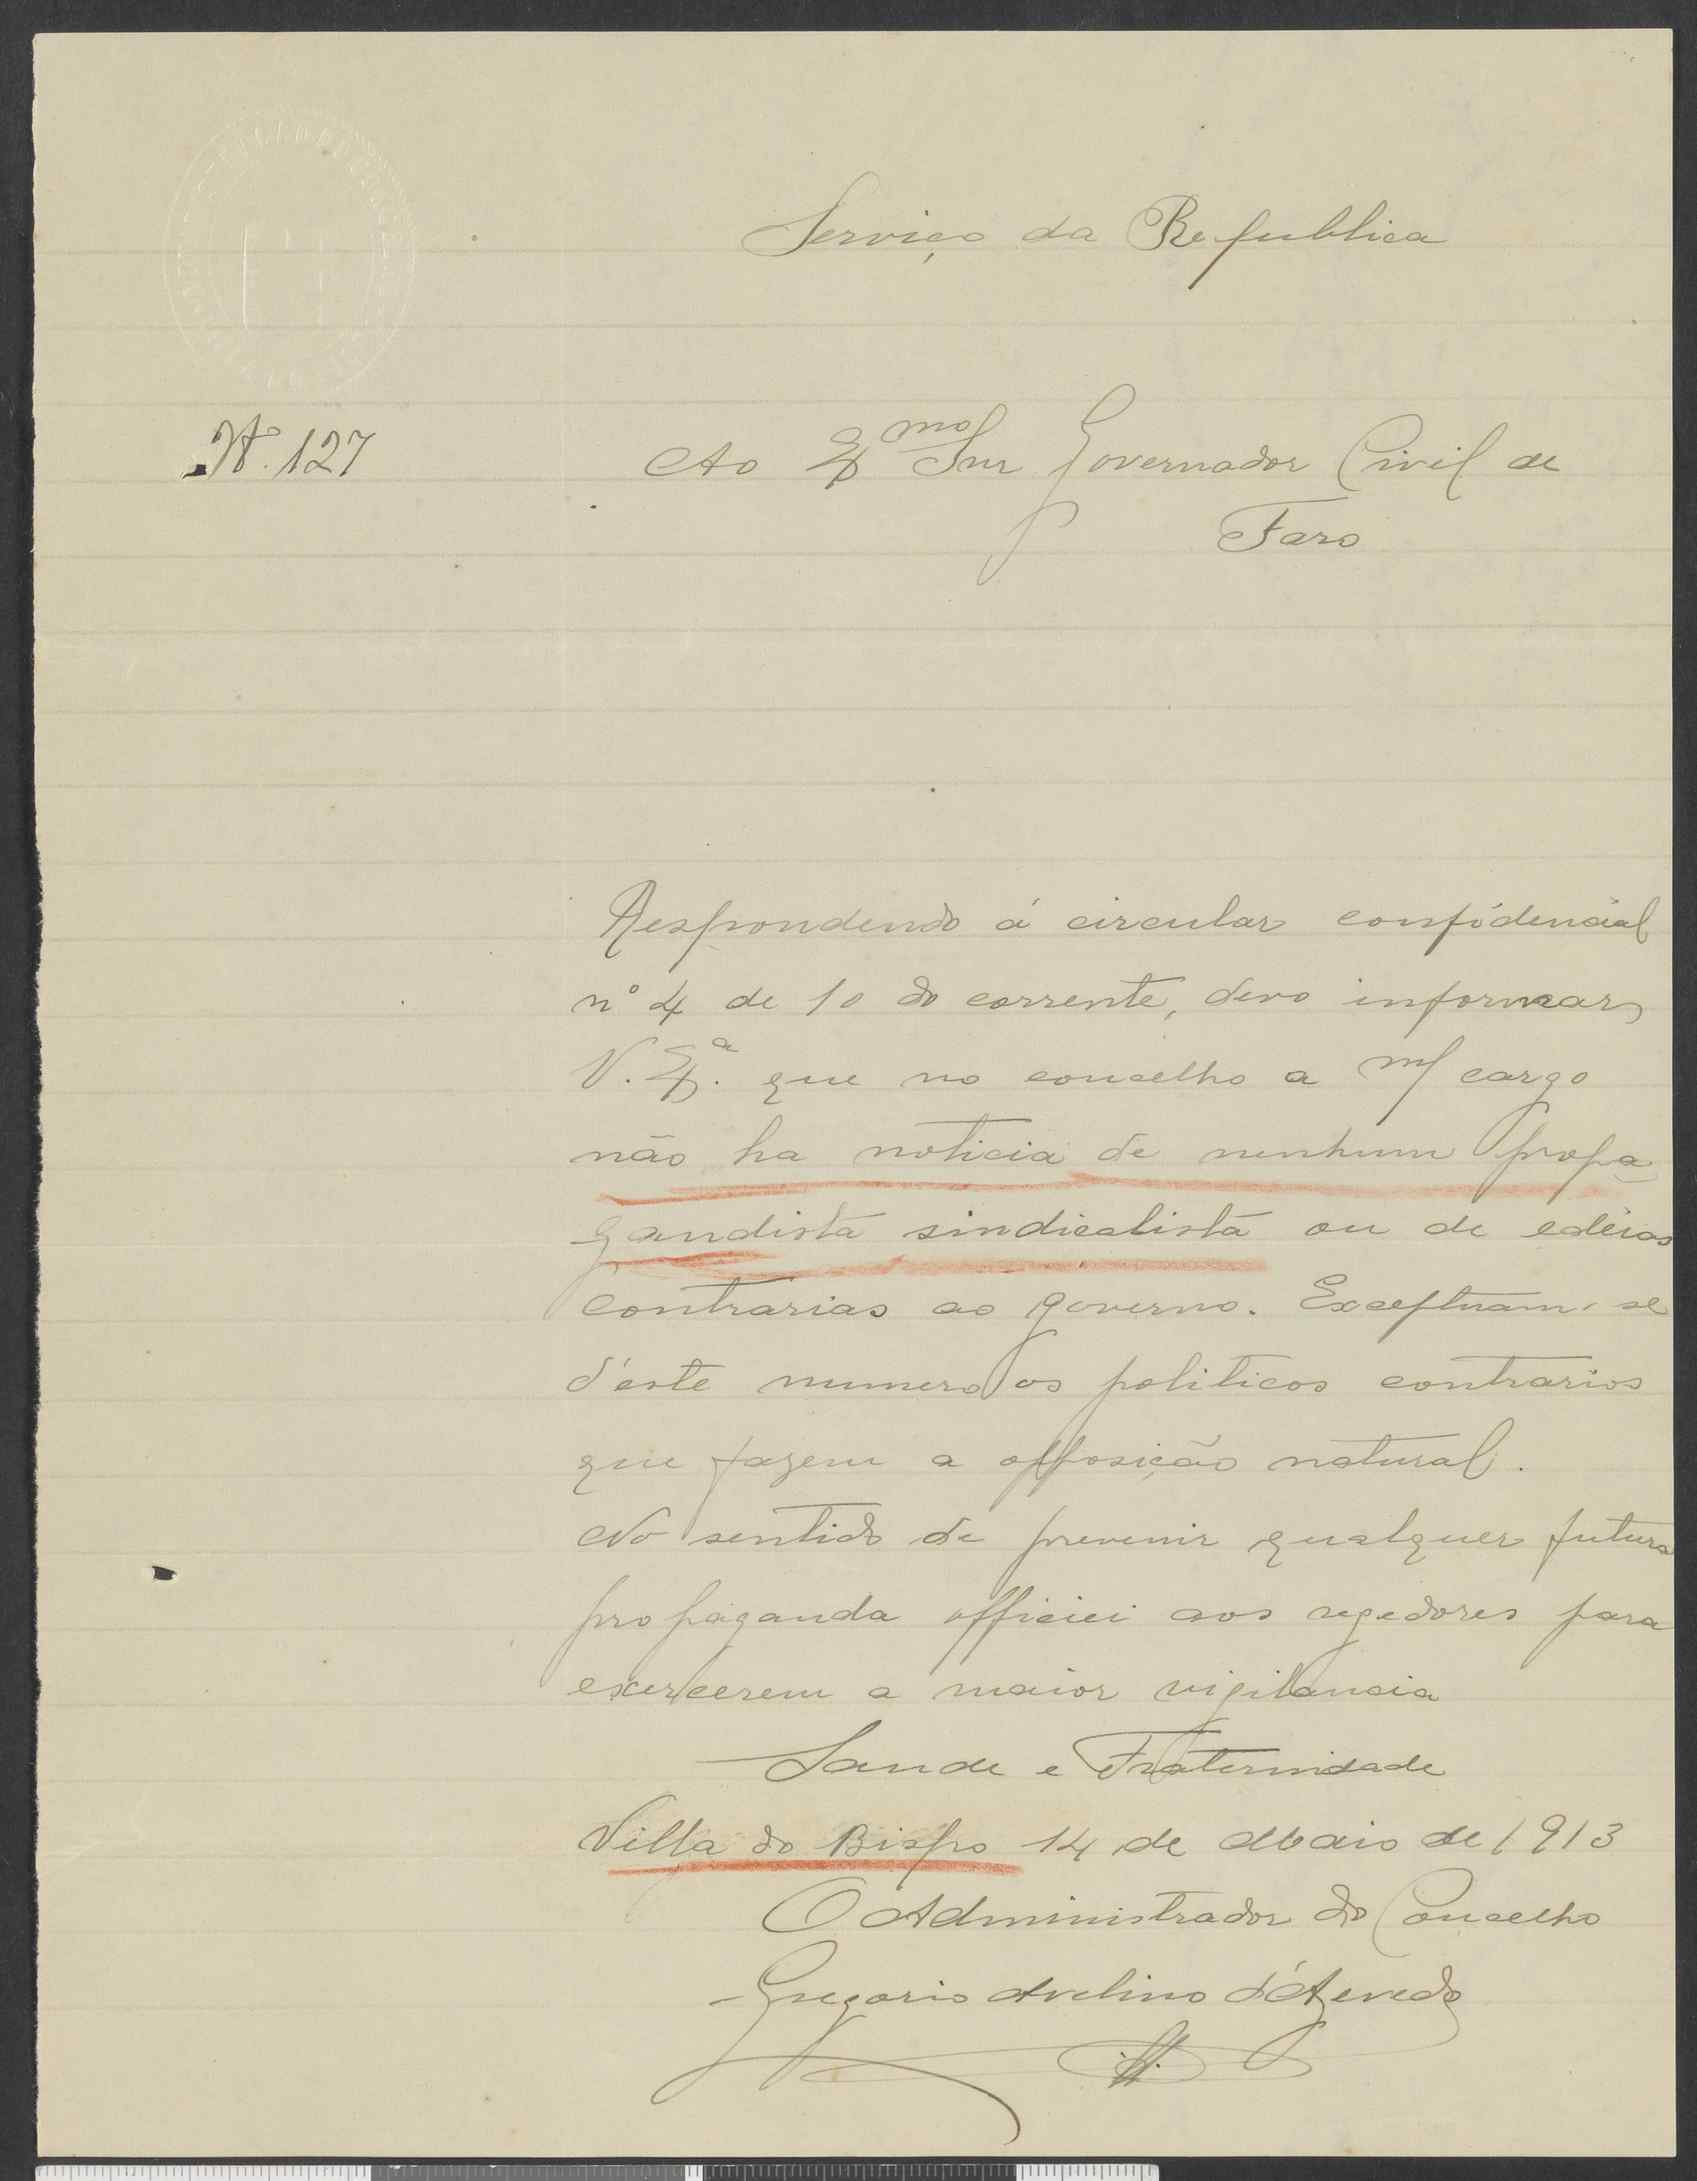 Serviço da Republica
Nº. 127
Ao Exmo Snr Governador Civil de
Faro
Respondendo á circular confidencial
nº 4 de 10 do corrente, devo informar
V. Exª. que no concelho a m/ cargo
não ha noticia de nenhum propa
gandista sindicalista ou de edeias
contrarias ao governo. Exceptuam-se
d'este numero os politicos contrarios
que fazem a opposição natural.
No sentido de prevenir qualquer futura
propaganda officiei aos regedores para
exercerem a maior vigilancia
Saude e Fraternidade
Villa do Bispo 14 de Maio de 1913
O Administrador do Concelho
Gregorio Avelino d'Azevedo